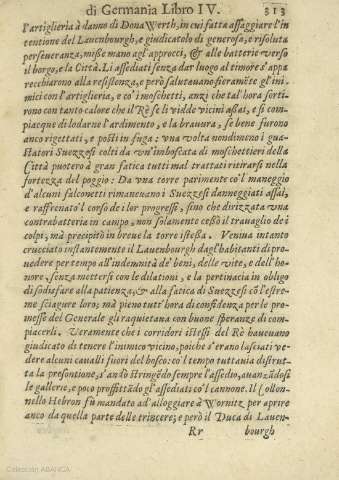 di Germania Libro IV. 313
l'artiglieria à danno di DonaWerth, in cui fatta assaggiare l'in
tentione del Lauenbourgh, e giudicatolo di generosa, e risoluta
perseueranza, miße mano agl'approcci, & alle batterie verso
il borgo, e la Città. Li assediati senza dar luogo al timore s'appa
recchiarono alla resistenza, e però salutenano fieramẽte gl'ini
mici con l'artiglieria, e co'i moschetti, anzi che tal'hora sorti-
rono con tanto calore che il Rè se li vidde vicini aßai, e si com-
piacque di lodarne l'ardimento, e la brauura, se bene furono
anco rigettati, e posti in fuga: vna volta nondimeno i gua-
statori Suezzesi colti da vn'imboscata di moschettieri della
Città puotero à gran fatica tutti mal trattati ritirarsi nella
fortezza del poggio: Da vna torre parimente co'l maneggio
d'alcuni falconetti rimaneuano i Suezzesi danneggiati assai,
e raffrenato'l corso de i lor progressi, sino che dirizzata vna
contrabatteria in campo, non solamente ceßò il trauaglio de i
colpi, mà precipitò in breue la torre isteßa. Veniua intanto
crucciato instantemente il Lauenbourgh dagl'habitanti di pro-
uedere per tempo all'indemnità de' beni, delle vite, e dell'ho-
nore, senza mettersi con le dilationi, e la pertinacia in obligo
di sodisfare alla patienza, & alla fatica di Suezzesi cõ l'estre-
me sciagure loro; mà pieno tutt'hora di confidenza per le pro-
messe del Generale gli raquietana con buone speranze di com-
piacerli. Veramente che i corridori istessi del Rè haueuano
giudicato di tenere l'inimico vicino, poiche s'erano lasciati ve-
dere alcuni caualli fuori del bosco: co'l tempo tuttauia distrut-
ta la presontione, s'andò stringẽdo sempre l'assedio, auanzãdosi
le gallerie, e poco proffittãdo gl'assediati co'l cannone. il Collon-
nello Hebron fù mandato ad'alloggiare à Wornitz per aprire
anco da quella parte delle trincere; e però il Duca di Lauen-
Rr bourgh
Colección ABANCA